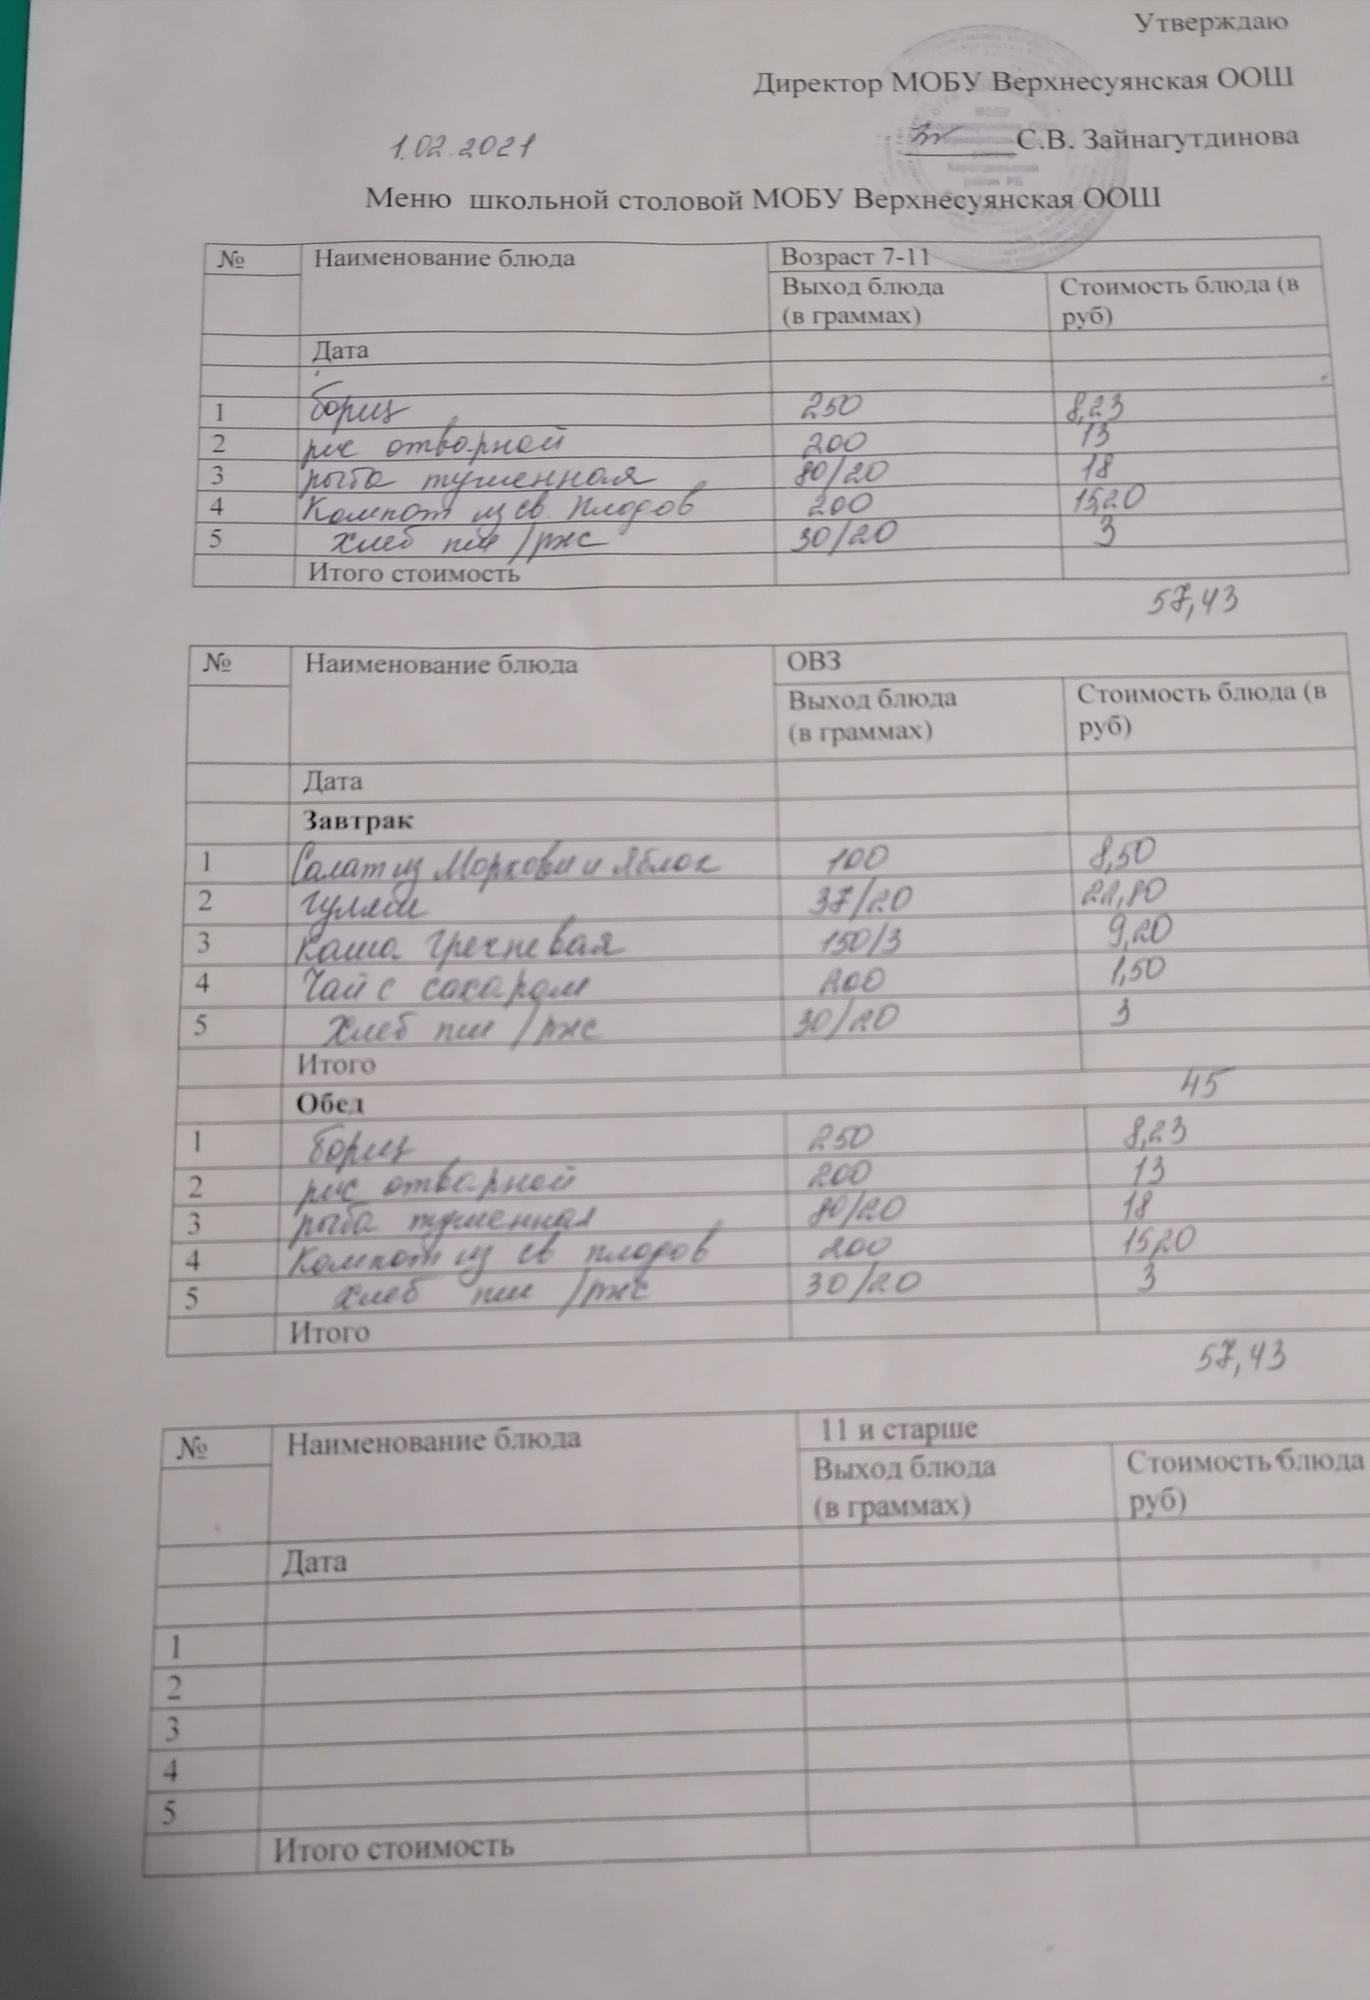 Утверждаю
Директор МОБУ Верхнесуянская ООШ
1.02.2021 С.В. Зайнагутдинова
Меню школьной столовой МОБУ Верхнесуянская ООШ
№ Наименование блюда Возраст 7-11
Выход блюда (в граммах) Стоимость блюда (в руб)
Дата
1 борщ 250 8,23
2 рис отварной 200 13
3 рыба тушенная 80/20 18
4 Компот из св. плодов 200 15,20
5 Хлеб пш/рж 30/20 3
Итого стоимость
57,43
№ Наименование блюда ОВЗ
Выход блюда (в граммах) Стоимость блюда (в руб)
Дата
Завтрак
1 Салат из Моркови и Яблок 100 8,50
2 гуляш 37/20 22,80
3 Каша гречневая 150/3 9,20
4 Чай с сахаром 200 1,50
5 Хлеб пш/рж 30/20 3
Итого
45
Обед
1 борщ 250 8,23
2 рис отварной 200 13
3 рыба тушенная 80/20 18
4 Компот из св плодов 200 15,20
5 Хлеб пш/рж 30/20 3
Итого
57,43
№ Наименование блюда 11 и старше
Выход блюда (в граммах) Стоимость блюда руб)
Дата
1
2
3
4
5
Итого стоимость